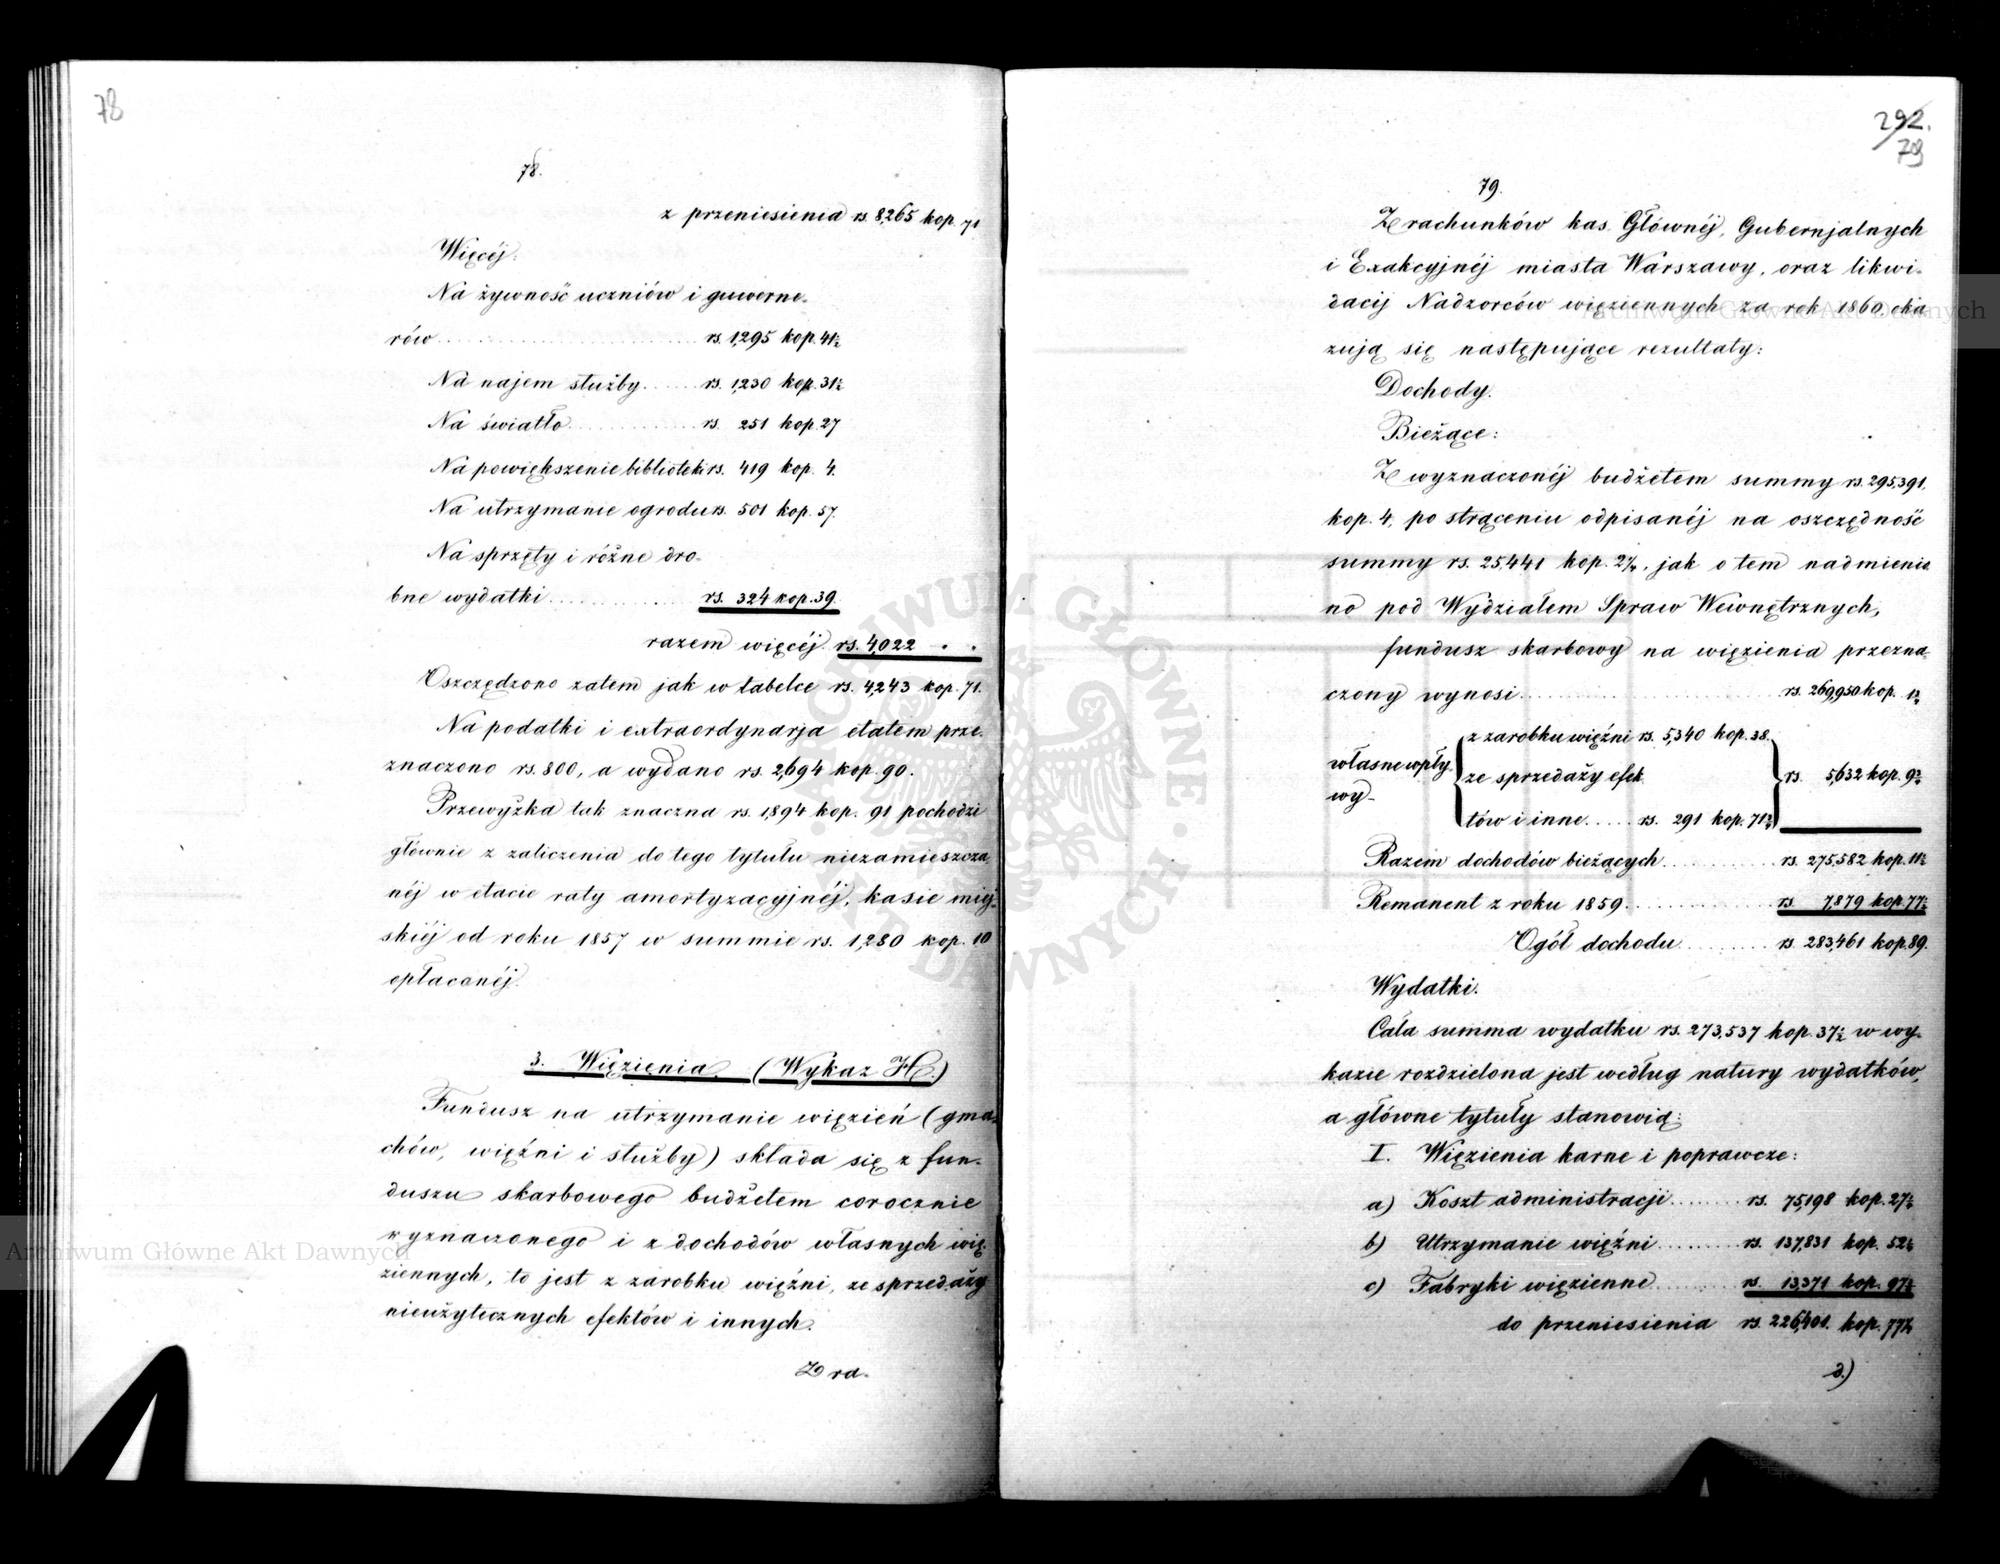 78
78.
z przeniesienia rs 8,265 kop. 71
Więcéj:
Na żywność uczniów i guwerne-
rów rs. 1,295 kop. 41½
Na najem służby rs. 1,230 kop. 31½
Na światło rs. 251 kop. 27
Na powiększenie biblioteki rs. 419 kop. 4.
Na utrzymanie ogrodu rs. 501 kop. 57.
Na sprzęty i różne dro-
bne wydatki rs. 324 kop. 39
razem więcéj rs. 4,022 - .
Oszczędzono zatem jak w tabelce rs. 4,243 kop. 71.
Na podatki i extraordynarja etatem prze-
znaczono rs. 800, a wydano rs. 2,694 kop. 90.
Przewyżka tak znaczna rs. 1,894 kop. 91 pochodzi
głównie z zaliczenia do tego tytułu niezamieszcza
néj w etacie raty amortyzacyjnéj, kasie miej-
skiéj od roku 1857 w summie rs. 1,280 kop. 10
opłaconéj.
3. Więzienia. (Wykaz H.)
Fundusz na utrzymanie więzień (gma-
chów, więźni i służby) składa się z fun-
duszu skarbowego budżetem corocznie
wyznaczonego i z dochodów własnych wię-
ziennych, to jest z zarobku więźni, ze sprzedaży
nieużytecznych efektów i innych.
Z ra-
292.
79
79.
Z rachunków kas Głównéj, Gubernjalnych
i Exakcyjnéj miasta Warszawy, oraz likwi-
dacij Nadzorców więziennych za rok 1860 oka
zują się następujące rezultaty:
Dochody.
Bieżące:
Z wyznaczonéj budżetem summy rs. 295,391,
kop. 4, po strąceniu odpisanéj na oszczędność
summy rs. 25,441 kop. 2½, jak o tem nadmienio
no pod Wydziałem Spraw Wewnętrznych,
fundusz skarbowy na więzienia przezna-
czony wynosi rs. 269,950 kop. 1½
własne wpły-
wy-
z zarobku więźni rs. 5,340 kop. 38.
ze sprzedaży efek
tów i inne rs. 291 kop. 71½
rs. 5,632 kop. 9½
Razem dochodów bieżących rs. 275,582 kop. 11½
Remanent z roku 1859 rs. 7,879 kop. 77½
Ogół dochodu rs. 283,461 kop. 89.
Wydatki.
Cała summa wydatku rs. 273,537 kop. 37½ w wy-
kazie rozdzielona jest według natury wydatków,
a główne tytuły stanowią:
I. Więzienia karne i poprawcze:
a) Koszt administracji rs. 75,198 kop. 27½
b) Utrzymanie więźni rs. 137,831 kop. 52½
c) Fabryki więzienne rs. 13,371 kop. 97½
do przeniesienia rs. 226,401. kop. 77½
d.)
Archiwum Główne Akt Dawnych
Archiwum Główne Akt Dawnych
ARCHIWUM GŁÓWNE AKT DAWNYCH